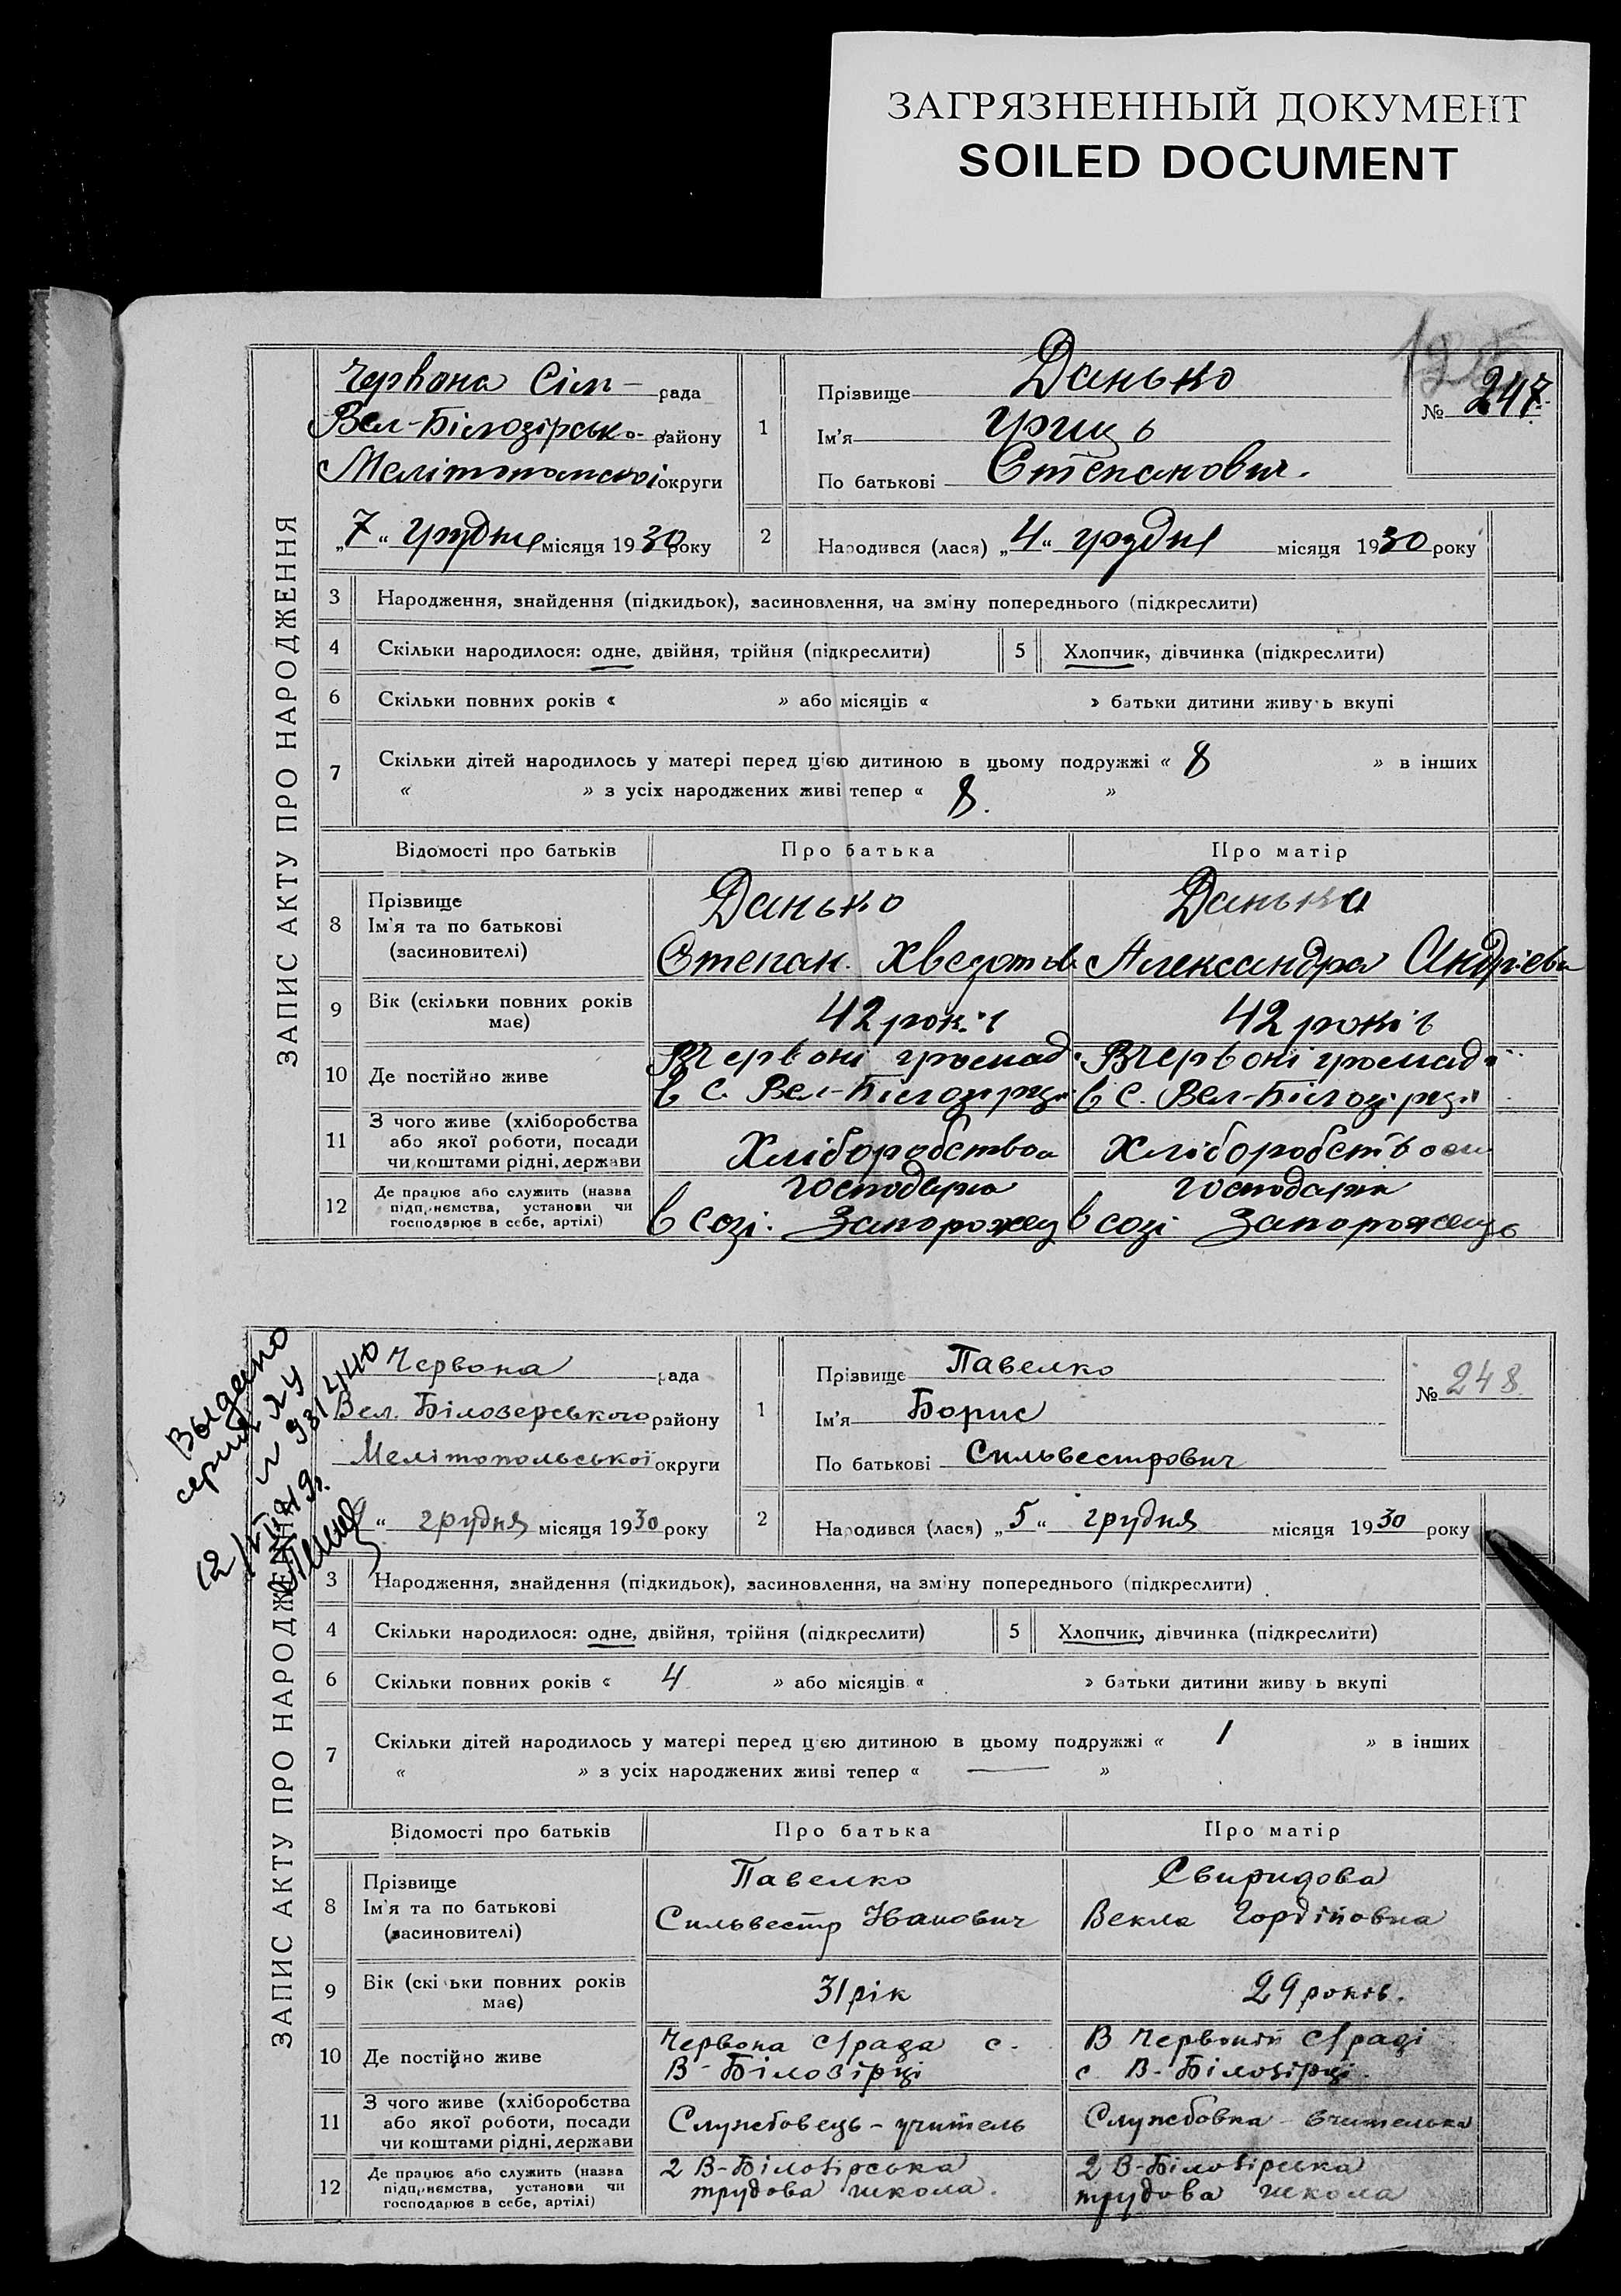 ЗАГРЯЗНЕННЫЙ ДОКУМЕНТ
SOILED DOCUMENT
ЗАПИС АКТУ ПРО НАРОДЖЕННЯ
Червона Сіль- рада
Вел-Білозірськ о- району
Мелітопольської округи
„7“ грудня місяця 1930 року
1
Прізвище Данько
Ім'я Гриць
По батькові Степанович.
№ 247
2
Народився (лася) „4“ грудня місяця 1930 року
3 Народження, знайдення (підкидьок), засиновлення, на зміну попереднього (підкреслити)
4 Скільки народилося: одне, двійня, трійня (підкреслити)
5 Хлопчик, дівчинка (підкреслити)
6 Скільки повних років « » або місяців « » батьки дитини живуть вкупі
7 Скільки дітей народилось у матері перед цією дитиною в цьому подружжі « 8 » в інших
« » з усіх народжених живі тепер « 8. »
Відомості про батьків Про батька Про матір
8 Прізвище
Ім'я та по батькові
(засиновителі)
Данько
Степан. Хведотов
Данько
Александра Андріева
9 Вік (скільки повних років
має)
42 років
42 років
10 Де постійно живе
Вчервоні громаді
в с. Вел-Білозірці
Вчервоні громаді
в с. Вел-Білозірці
11 З чого живе (хліборобства
або якої роботи, посади
чи коштами рідні, держави
Хлібороство
Хліборобством
12 Де працює або служить (назва
підприємства, установи чи
господарює в себе, артілі)
господарка
в созі. Запорожец
господарка
в созі Запорожець
ЗАПИС АКТУ ПРО НАРОДЖЕННЯ
Выдано
Червона рада
Вел. Білозерського району
Мелітопольської округи
“ грудня місяця 1930 року
1
Прізвище Павелко
Ім'я Борис
По батькові Сильвестрович
№ 248
2
Народився (лася) „5“ грудня місяця 1930 року
3 Народження, знайдення (підкидьок), засиновлення, на зміну попереднього (підкреслити)
4 Скільки народилося: одне, двійня, трійня (підкреслити)
5 Хлопчик, дівчинка (підкреслити)
6 Скільки повних років « 4 » або місяців « » батьки дитини живу ь вкупі
7 Скільки дітей народилось у матері перед цією дитиною в цьому подружжі « 1 » в інших
« » з усіх народжених живі тепер « — »
Відомості про батьків Про батька Про матір
8 Прізвище
Ім'я та по батькові
(засиновителі)
Павелко
Сильвестр Іванович
Свиридова
Векла Гордіївна
9 Вік (скільки повних років
має)
31 рік
29 років.
10 Де постійно живе
Червона с/рада с.
В-Білозірці
В Червоній с/раді
с В-Білозірці.
11 З чого живе (хліборобства
або якої роботи, посади
чи коштами рідні, держави
Службовець - учитель
Службовка - вчителька
12 Де працює або служить (назва
підприємства, установи чи
господарює в себе, артілі)
2 В-Білозірська
трудова школа.
2 В-Білозірська
трудова школа